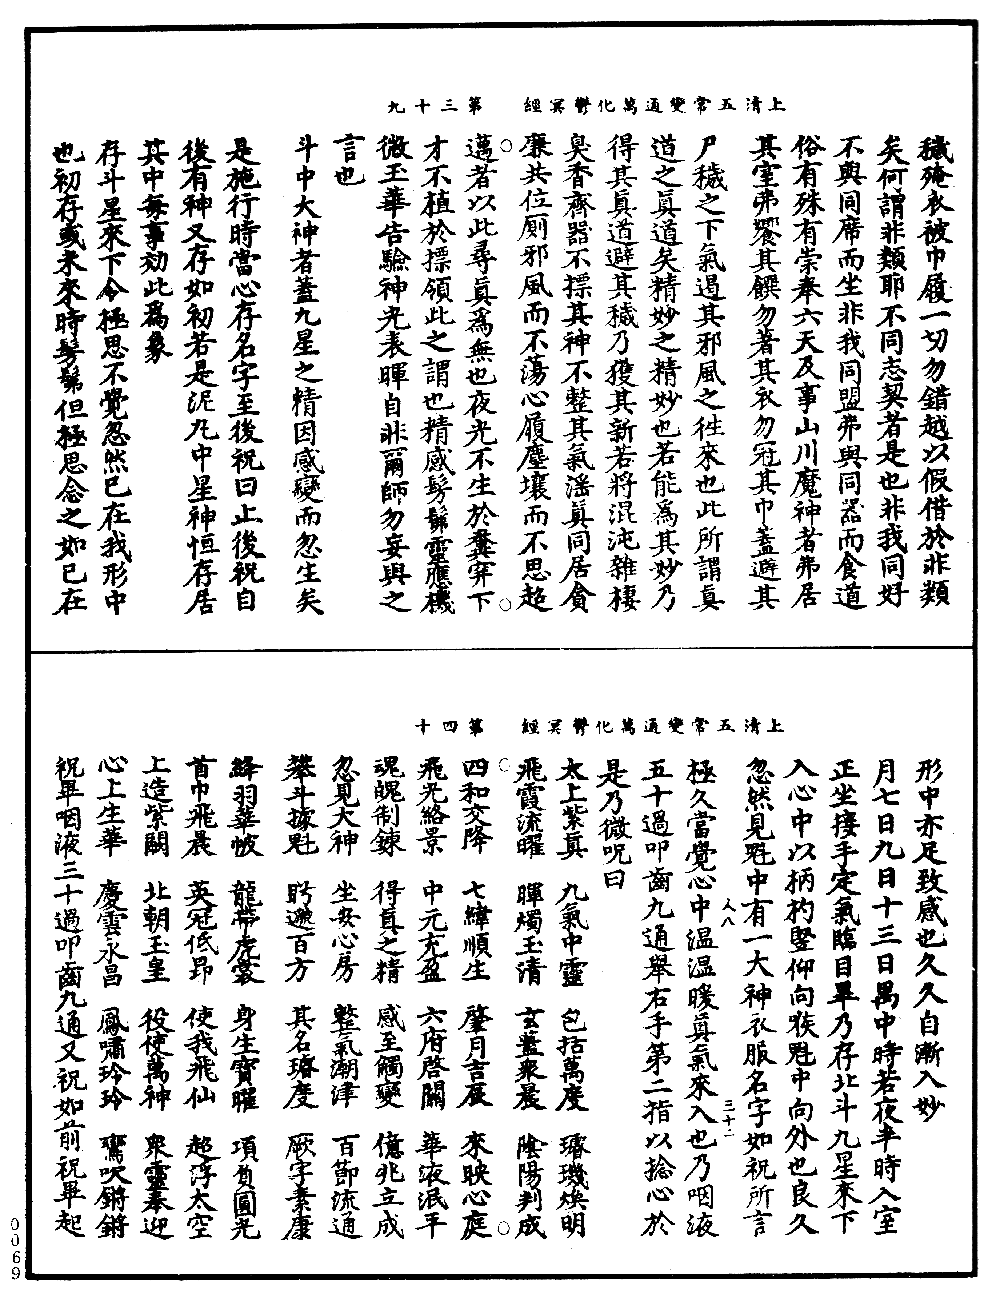 上清五常變通萬化鬱冥經　第三十九
穢殗衣被巾履一切勿錯越以假借於非類
矣何謂非類耶不同志契者是也非我同好
不與同席而坐非我同盟弗與同器而食道
俗有殊有崇奉六天及事山川魔神者弗居
其室弗饗其饌勿著其衣勿冠其巾蓋避其
尸穢之下氣遏其邪風之往來也此所謂真
道之真道矣精妙之精妙也若能為其妙乃
得其真道避其穢乃獲其新若將混沌雜棲
臭香齊器不摽其神不整其氣滛真同居貪
廉共位厠邪風而不蕩心履塵壤而不思超
邁者以此尋真為無也夜光不生於糞穽下
才不植於摽領此之謂也精感髣髴靈應機
微玉華告驗神光表暉自非爾師勿妄與之
言也
斗中大神者蓋九星之精因感變而忽生矣
是施行時當心存名字至後祝曰止後祝自
後有神又存如初若是泥丸中星神恒存居
其中每事効此為象
存斗星來下令極思不覺忽然已在我形中
也初存或未來時髣髴但極思念之如已在
上清五常變通萬化鬱冥經　第四十
形中亦足致感也久久自漸入妙
月七日九日十三日禺中時若夜半時入室
正坐接手定氣臨目畢乃存北斗九星來下
入心中以柄杓豎仰向喉魁中向外也良久
忽然見魁中有一大神衣服名字如祝所言
極久當覺心中溫溫暖真氣來入也乃咽液
五十過叩齒九通舉右手第二指以捻心於
是乃微呪曰
太上紫真　九氣中靈　包括萬度　璿璣煥明
飛霞流曜　暉燭玉清　玄蓋衆晨　陰陽判成
四和交降　七緯順生　肇月吉辰　來映心庭
飛光絡景　中元充盈　六府啓關　華液泯平
魂魄制鍊　得真之精　感至觸變　億兆立成
忽見大神　坐安心房　整氣潮津　百節流通
攀斗據魁　眄邀百方　其名璿度　厥字素康
絳羽華帔　龍帶虎裳　身生寶曜　項負圓光
首巾飛晨　英冠低昂　使我飛仙　超浮太空
上造紫闕　北朝玉皇　役使萬神　衆靈奉迎
心上生華　慶雲永昌　鳳嘯玲玲　鸞吹鏘鏘
祝畢咽液三十過叩齒九通又祝如前祝畢起
人八
三十二
0069